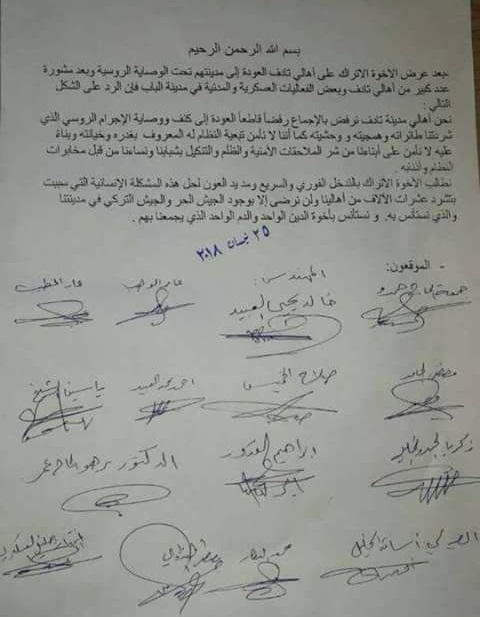 بسم الله الرحمن الرحيم
بعد عرض الاخوة الاتراك على أهالي تادف العودة إلى مدينتهم تحت الوصاية الروسية وبعد مشورة
عدد كبير من أهالي تادف وبعض الفعاليات العسكرية والمدنية في مدينة الباب فإن الرد على الشكل
التالي :
نحن أهالي مدينة تادف نرفض بالإجماع رفضاً قاطعاً العودة إلى كنف ووصاية الإجرام الروسي الذي
شردتنا طائراته وهمجيته و وحشيته كما أننا لا نأمن تبعية النظام له المعروف بغدره وخيانته وبناءً
عليه لا نأمن على أبناءنا من شر الملاحقات الأمنية والظلم والتنكيل بشبابنا ونساءنا من قبل مخابرات
النظام وأذنابه .
نطالب الأخوة الاتراك بالتدخل الفوري والسريع ومد يد العون لحل هذه المشكلة الإنسانية التي سببت
بتشرد عشرات الالاف من أهالينا ولن نرضى إلا بوجود الجيش الحر والجيش التركي في مدينتنا
والذي نستأنس به و نستأنس بأخوة الدين الواحد والدم الواحد الذي يجمعنا بهم .
٢٥ نيسان ٢٠١٨
- الموقعون:
المهندس:
خالد يحيى العبيد
صلاح
احمد محمد العبيد
ياسين الشيخ
ابراهيم
الدكتور برهو الحاج عمر